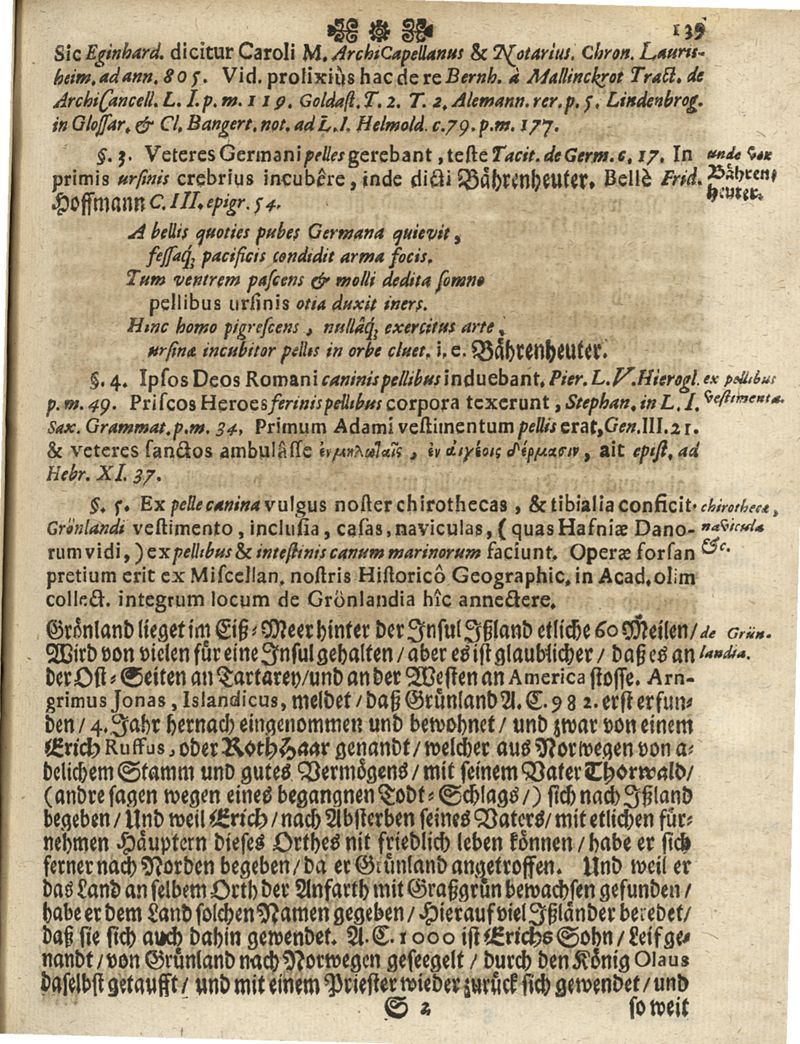 139
Sic Eginhard. dicitur Caroli M. ArchiCapellanus & Notarius. Chron. Lauris-
heim. ad ann. 805. Vid. prolixiùs hac de re Bernh. à Mallinckrot Tract. de
ArchiCancell. L. I. p. m. 119. Goldast. T. 2. T. 2. Alemann. rer. p. 5. Lindenbrog.
in Glossar. & Cl. Bangert. not. ad L. I. Helmold. c. 79. p. m. 177.
§. 3. Veteres Germani pelles gerebant, teste Tacit. de Germ. c. 17. In
primis ursinis crebrius incubêre, inde dicti Bährenheuter. Bellè Frid.
Hoffmann C. III. epigr. 54.
unde vox
Bähren-
heuter.
A bellis quoties pubes Germana quievit,
fessaq; pacificis condidit arma focis.
Tum ventrem pascens & molli dedita somno
pellibus ursinis otia duxit iners.
Hinc homo pigrescens, nullâq; exercitus arte,
ursinæ incubitor pellis in orbe cluet. i. e. Bährenheuter.
§. 4. Ipsos Deos Romani caninis pellibus induebant. Pier. L. V. Hierogl.
p. m. 49. Priscos Heroes ferinis pellibus corpora texerunt, Stephan. in L. I.
Sax. Grammat. p. m. 34. Primum Adami vestimentum pellis erat, Gen. III. 21.
& veteres sanctos ambulâsse ἐν μηλωταῖς, ἐν αἰγείοις δέρμασιν, ait epist. ad
Hebr. XI. 37.
ex pellibus
vestimenta.
§. 5. Ex pelle canina vulgus noster chirothecas, & tibialia conficit.
Grönlandi vestimento, inclusia, casas, naviculas, (quas Hafniæ Dano-
rum vidi,) ex pellibus & intestinis canum marinorum faciunt. Operæ forsan
pretium erit ex Miscellan. nostris Historicô Geographic. in Acad. olim
collect. integrum locum de Grönlandia hîc annectere.
chirothecæ,
navicula
&c.
Grönland lieget im Eiß-Meer hinter der Insul Ißland etliche 60 Meilen/
Wird von vielen für eine Insul gehalten/ aber es ist glaublicher/ daß es an
der Ost-Seiten an Tartarey/ und an der Westen an America stosse. Arn-
grimus Jonas, Islandicus, meldet/ daß Grünland A. C. 982. erst erfun-
den/ 4. Jahr hernach eingenommen und bewohnet/ und zwar von einem
Erich Ruffus, oder Roth Haar genandt/ welcher aus Norwegen von a-
delichem Stamm und gutes Vermögens/ mit seinem Vater Thorwald/
(andre sagen wegen eines begangnen Todt-Schlags/) sich nach Ißland
begeben/ Und weil Erich/ nach Absterben seines Vaters/ mit etlichen für-
nehmen Häuptern dieses Orthes nit friedlich leben können/ habe er sich
ferner nach Norden begeben/ da er Grünland angetroffen. Und weil er
das Land an selbem Orth der Anfarth mit Graßgrün bewachsen gefunden/
habe er dem Land solchen Namen gegeben/ Hierauf viel Ißländer beredet/
daß sie sich auch dahin gewendet. A. C. 1000 ist Erichs Sohn/ Leif ge-
nandt/ von Grünland nach Norwegen geseegelt/ durch den König Olaus
daselbst getaufft/ und mit einem Priester wieder zurück sich gewendet/ und
de Grün-
landia.
S 2
so weit